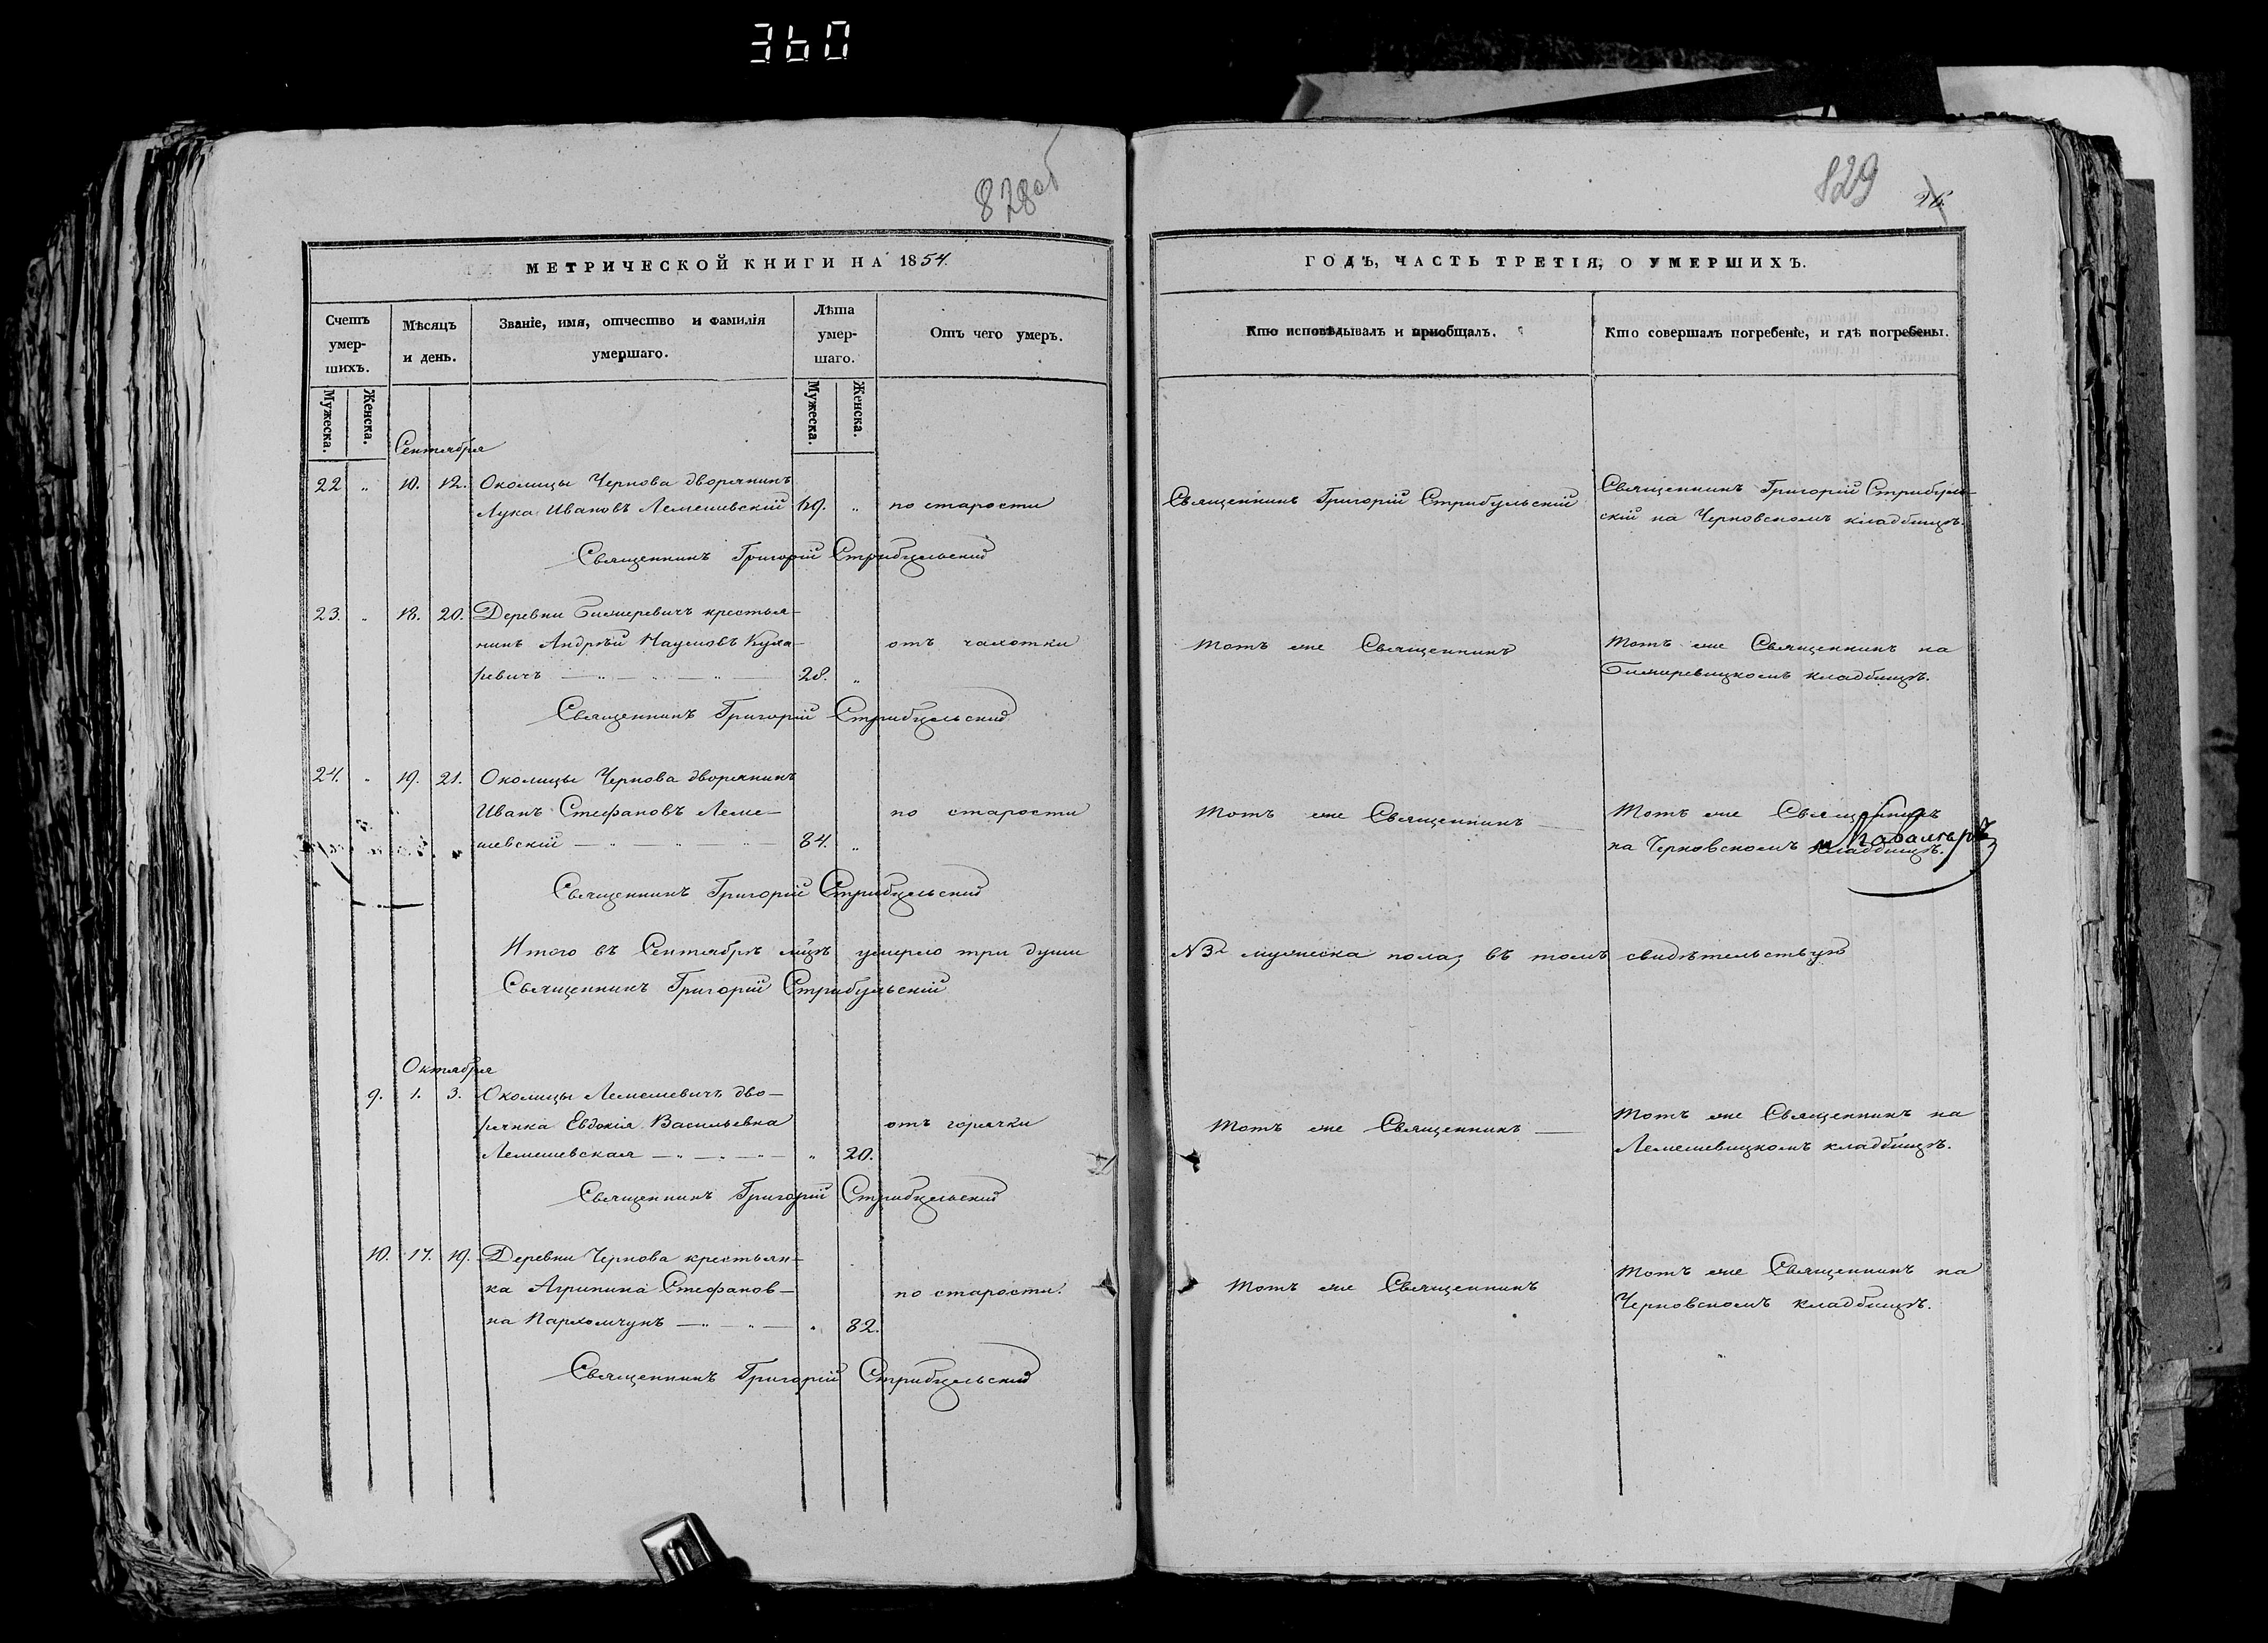 360
828об
МЕТРИЧЕСКОЙ КНИГИ НА 1854.
Счетъ умер- шихъ.
Мужеска.
Женска.
Мѣсяцъ и день.
Званіе, имя, отчество и фамилія умершаго.
Лѣта умер- шаго.
Мужеска.
Женска.
Отъ чего умеръ.
Сентября
22 „ 10. 12. Околицы Чернова дворянинъ
Лука Ивановъ Лемешевскій „ по старости
Священникъ Григорій Стрибульскій
23. „ 18. 20. Деревни Бижеревичъ крестья-
нинъ Андрѣй Наумовъ Куха- отъ чахотки
ревичъ — „ — „ — „ — 28. „
Священникъ Григорій Стрибульскій
24. „ 19. 21. Околицы Чернова дворянинъ
Иванъ Стефановъ Леме- по старости
шевскій — „ — „ — „ — 84. „
Священникъ Григорій Стрибульскій
Итого въ Сентябрѣ мцѣ умерло три души
Священникъ Григорій Стрибульскій
Октября
9. 1. 3. Околицы Лемешевичъ дво-
рянка Евдокія Васильевна отъ горячки
Лемешевская — „ — „ — „ 20.
Священникъ Григорій Стрибульскій
10. 17. 19. Деревни Чернова крестьян-
ка Агрипина Стефанов- по старости.
на Пархомчукъ — „ — „ — „ 82.
Священникъ Григорій Стрибульскій
829
26.
ГОДЪ, ЧАСТЬ ТРЕТІЯ, О УМЕРШИХЪ.
Кто исповѣдывалъ и приобщалъ.
Кто совершалъ погребеніе, и гдѣ погребены.
Священникъ Григорій Стрибульскій
Священникъ Григорій Стрибуль-
скій на Черновскомъ кладбищѣ.
тотъ же Священникъ
тотъ же Священникъ на
Бижеревицкомъ кладбищѣ.
тотъ же Священникъ —
тотъ же Священникъ
на Черновскомъ кладбищѣ.
№ 3й мужеска пола, въ томъ свидѣтельствую
тотъ же Священникъ —
тотъ же Священникъ на
Лемешевицкомъ кладбищѣ.
тотъ же Священникъ
тотъ же Священникъ на
Черновскомъ кладбищѣ.